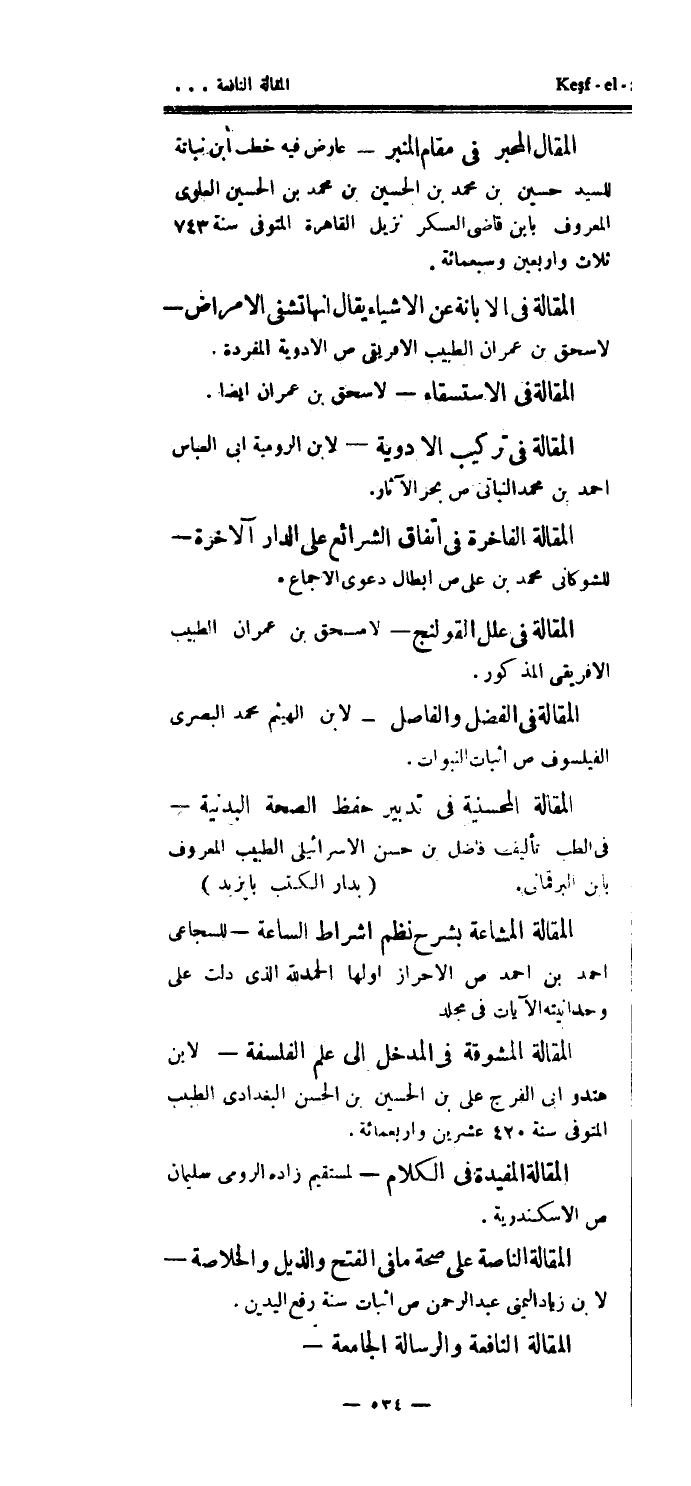 المقالة النافعة . . . Keşf - el -
المقال المحبر فى مقام المنبر — عارض فيه خطب ابن نباتة
للسيد حسين بن محمد بن الحسين بن محمد بن الحسين العلوى
المعروف بابن قاضى العسكر نزيل القاهرة المتوفى سنة ٧٤٣
ثلاث واربعين وسبعمائة .
المقالة فى الابانة عن الاشياء يقال انها تشفى الامراض —
لاسحق بن عمران الطبيب الافريقى ص الادوية المفردة .
المقالة فى الاستسقاء — لاسحق بن عمران ايضا .
المقالة فى تركيب الادوية — لابن الرومية ابى العباس
احمد بن محمد النباتى ص بحر الآثار.
المقالة الفاخرة فى اتفاق الشرائع على الدار الآخرة —
للشوكانى محمد بن على ص ابطال دعوى الاجماع .
المقالة فى علل القولنج — لاسحق بن عمران الطبيب
الافريقى المذكور .
المقالة فى الفضل والفاصل — لابن الهيثم محمد البصرى
الفيلسوف ص اثبات النبوات .
المقالة المحسنية فى تدبير حفظ الصحة البدنية —
فى الطب تأليف فاضل بن حسن الاسرائيلى الطبيب المعروف
بابن البرقمانى. ( بدار الكتب بايزيد )
المقالة المشاعة بشرح نظم اشراط الساعة — للسجاعى
احمد بن احمد ص الاحراز اولها الحمدلله الذى دلت على
وحدانيته الآيات فى مجلد
المقالة المشوقة فى المدخل الى علم الفلسفة — لابن
هندو ابى الفرج على بن الحسين بن الحسن البغدادى الطبيب
المتوفى سنة ٤٢٠ عشرين واربعمائة .
المقالة المفيدة فى الكلام — لمستقيم زاده الرومى سليمان
ص الاسكندرية .
المقالة الناصة على صحة مافى الفتح والذيل والخلاصة —
لابن زياد اليمنى عبدالرحمن ص اثبات سنة رفع اليدين .
المقالة النافعة والرسالة الجامعة —
— ٥٣٤ —